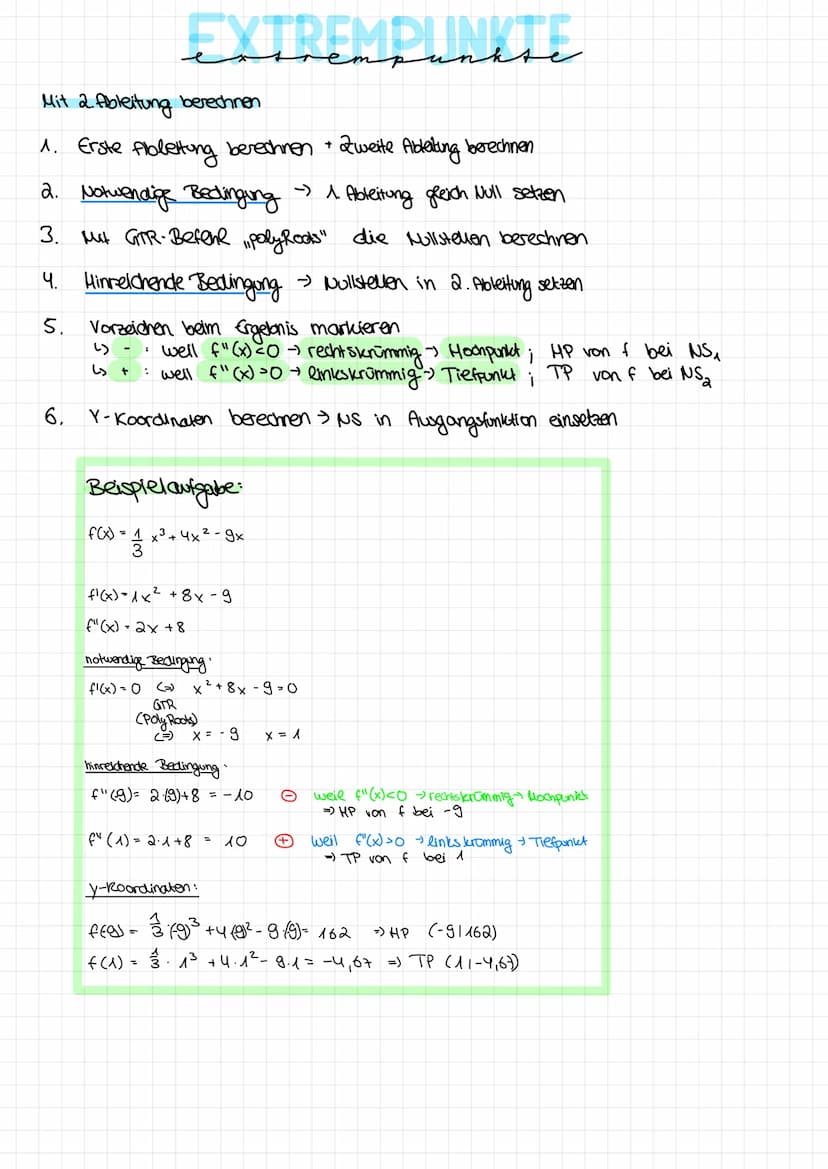 EXTREMPUNKTE
extrempunkte
Mit 2. Ableitung berechnen
1. Erste Ableitung berechnen + Zweite Ableitung berechnen
2. Notwendige Bedingung → 1 Ableitung gleich Null setzen
3. Mit GTR-Befehl „polyRoots" die Nullstellen berechnen
4. Hinreichende Bedingung → Nullstellen in 2. Ableitung setzen
5. Vorzeichen beim Ergebnis markieren
↳ - : weil f"(x)<0 → rechtskrümmig → Hochpunkt ; HP von f bei NS₁
↳ + : weil f"(x)>0 → linkskrümmig → Tiefpunkt ; TP von f bei NS₂
6. Y-Koordinaten berechnen → NS in Ausgangsfunktion einsetzen
Beispielaufgabe:
f(x) = 1/3 x³ + 4x² - 9x
f'(x) = 1x² + 8x - 9
f"(x) = 2x + 8
notwendige Bedingung:
f'(x) = 0 <=> x² + 8x - 9 = 0
GTR
(PolyRoots)
<=> x = -9 x = 1
hinreichende Bedingung:
f"(-9) = 2·(-9)+8 = -10 ⊖ weil f"(x)<0 → rechtskrümmig → Hochpunkt
⇒ HP von f bei -9
f"(1) = 2·1+8 = 10 ⊕ weil f"(x)>0 → linkskrümmig → Tiefpunkt
⇒ TP von f bei 1
y-Koordinaten:
f(-9) = 1/3·(-9)³ + 4·(-9)² - 9·(-9) = 162 ⇒ HP (-9|162)
f(1) = 1/3 · 1³ + 4·1² - 9·1 = -4,67 ⇒ TP (1|-4,67)